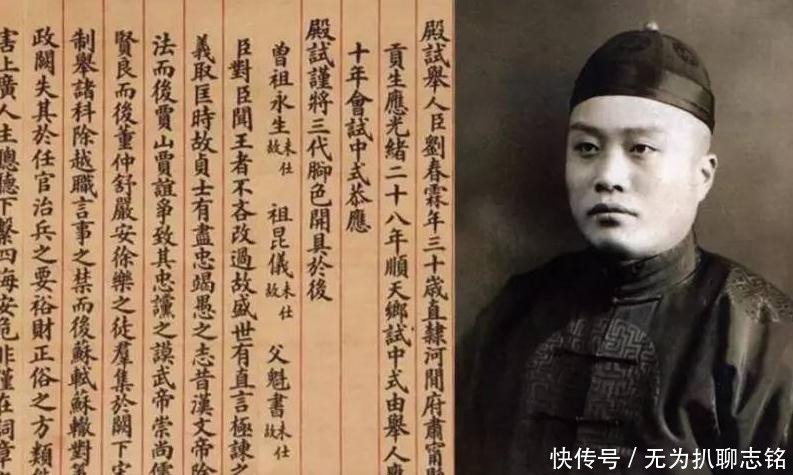 殿試舉人臣劉春霖年三十歲直隸河間府肅寧縣
貢生應光緒二十八年順天鄉試中式由舉人應
十年會試中式恭應
殿試謹將三代腳色開具於後
曾祖永生未仕故 祖昆儀未仕故 父魁書未仕故
臣對臣聞王者不吝改過故盛世有直言極諫之
義取匡時故貞士有盡忠竭愚之志昔漢文帝除
法而後賈山賈誼爭致其忠讜之謨武帝崇尚儒
賢良而後董仲舒嚴安徐樂之徒羣集於闕下宋
制舉諸科除越職言事之禁而後蘇軾蘇轍對
政闕失其於任官治兵之要裕財正俗之方類
害上廣人主聰聽下繫四海安危非僅在詞章
快传号/无为扒聊志铭